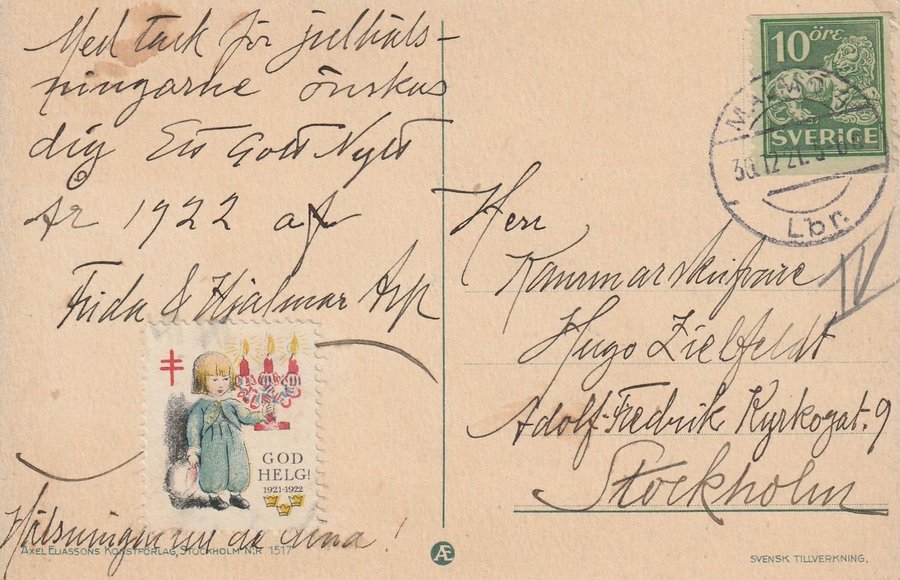 Med tack för julhäls-
ningarne önskas
dig Ett Gott Nytt
År 1922 af
Frida & Hjalmar Arp
GOD
HELG!
1921-1922
Hälsningen
dina!
AXEL ELIASSONS KONSTFÖRLAG, STOCKHOLM N:R 1517
Æ
10 öre
SVERIGE
30.12.21.
Lbr.
IV
Herr
Kammarskrifvare
Hugo Zielfeldt
Adolf-Fredrik Kyrkogat. 9
Stockholm
SVENSK TILLVERKNING.